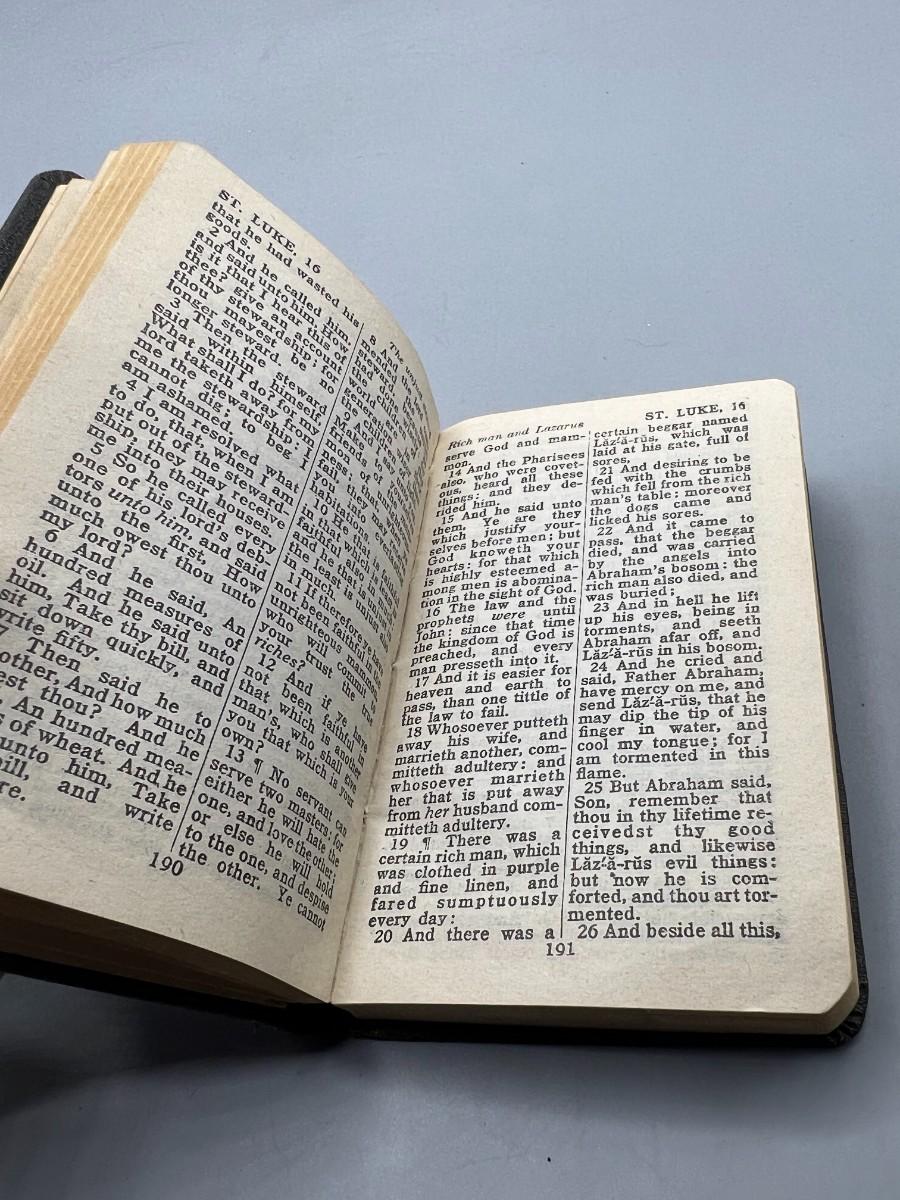 ST. LUKE, 16
that he had wasted his
goods.
2 And he called him,
and said unto him, How
is it that I hear this of
thee? give an account
of thy stewardship; for
thou mayest be no
longer steward.
3 Then the steward
said within himself,
What shall I do? for my
lord taketh away from
me the stewardship: I
cannot dig; to beg I
am ashamed.
4 I am resolved what
to do, that, when I am
put out of the steward-
ship, they may receive
me into their houses.
5 So he called every
one of his lord's deb-
tors unto him, and said
unto the first, How
much owest thou unto
my lord?
6 And he said, An
hundred measures of
oil. And he said unto
him, Take thy bill, and
sit down quickly, and
write fifty.
7 Then said he to
other, And how much
est thou? And he
An hundred mea-
s of wheat. And he
unto him, Take
bill, and write
re.
The
8 And the
mended the
steward
had done
the
world
generation
the children
9 And I say
Make
monds
ness;
fail,
you into
habitations.
10 He that
in that which
faithful
and he that is unjust in
the least is unjust
in much.
11 If therefore ye have
not been faithful in the
unrighteous mammon,
who will commit to
your trust the true
riches?
12 And if ye have
not been faithful in
that which is another
man's, who shall give
you that which is your
own?
13 ¶ No servant can
serve two masters: for
either he will hate the
one, and love the other;
or else he will hold
to the one, and despise
the other. Ye cannot
190
Rich man and Lazarus
ST. LUKE, 16
serve God and mam-
mon.
14 And the Pharisees
also, who were covet-
ous, heard all these
things: and they de-
rided him.
15 And he said unto
them, Ye are they
which justify your-
selves before men; but
God knoweth your
hearts: for that which
is highly esteemed a-
mong men is abomina-
tion in the sight of God.
16 The law and the
prophets were until
John: since that time
the kingdom of God is
preached, and every
man presseth into it.
17 And it is easier for
heaven and earth to
pass, than one tittle of
the law to fail.
18 Whosoever putteth
away his wife, and
marrieth another, com-
mitteth adultery: and
whosoever marrieth
her that is put away
from her husband com-
mitteth adultery.
19 ¶ There was a
certain rich man, which
was clothed in purple
and fine linen, and
fared sumptuously
every day:
20 And there was a
certain beggar named
Lăz´ă-rŭs, which was
laid at his gate, full of
sores,
21 And desiring to be
fed with the crumbs
which fell from the rich
man's table: moreover
the dogs came and
licked his sores.
22 And it came to
pass, that the beggar
died, and was carried
by the angels into
Abraham's bosom: the
rich man also died, and
was buried;
23 And in hell he lift
up his eyes, being in
torments, and seeth
Abraham afar off, and
Lăz´ă-rŭs in his bosom.
24 And he cried and
said, Father Abraham,
have mercy on me, and
send Lăz´ă-rŭs, that he
may dip the tip of his
finger in water, and
cool my tongue; for I
am tormented in this
flame.
25 But Abraham said,
Son, remember that
thou in thy lifetime re-
ceivedst thy good
things, and likewise
Lăz´ă-rŭs evil things:
but now he is com-
forted, and thou art tor-
mented.
26 And beside all this,
191